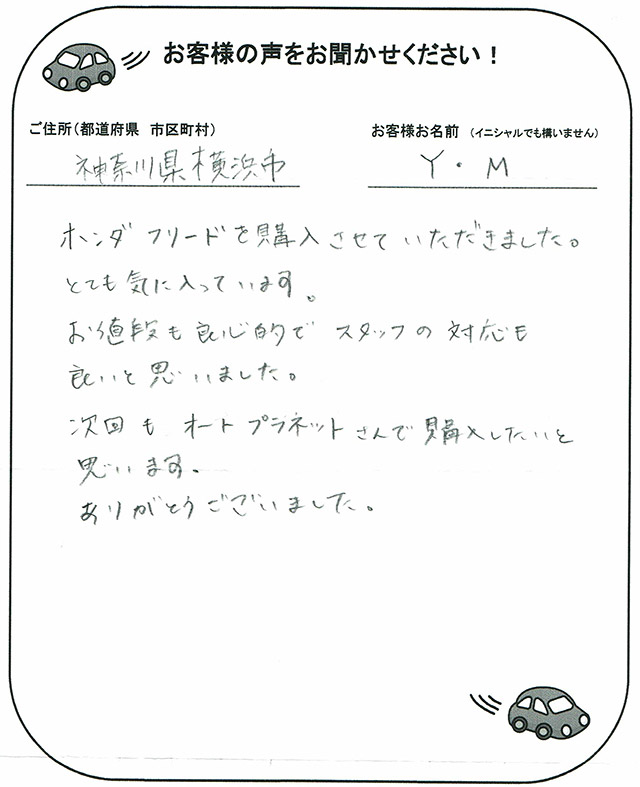 お客様の声をお聞かせください！
ご住所（都道府県　市区町村）　お客様お名前　（イニシャルでも構いません）
神奈川県横浜市　Y・M
ホンダ フリードを購入させていただきました。
とても気に入っています。
お値段も良心的で スタッフの対応も
良いと思いました。
次回も オートプラネットさんで購入したいと
思います。
ありがとうございました。